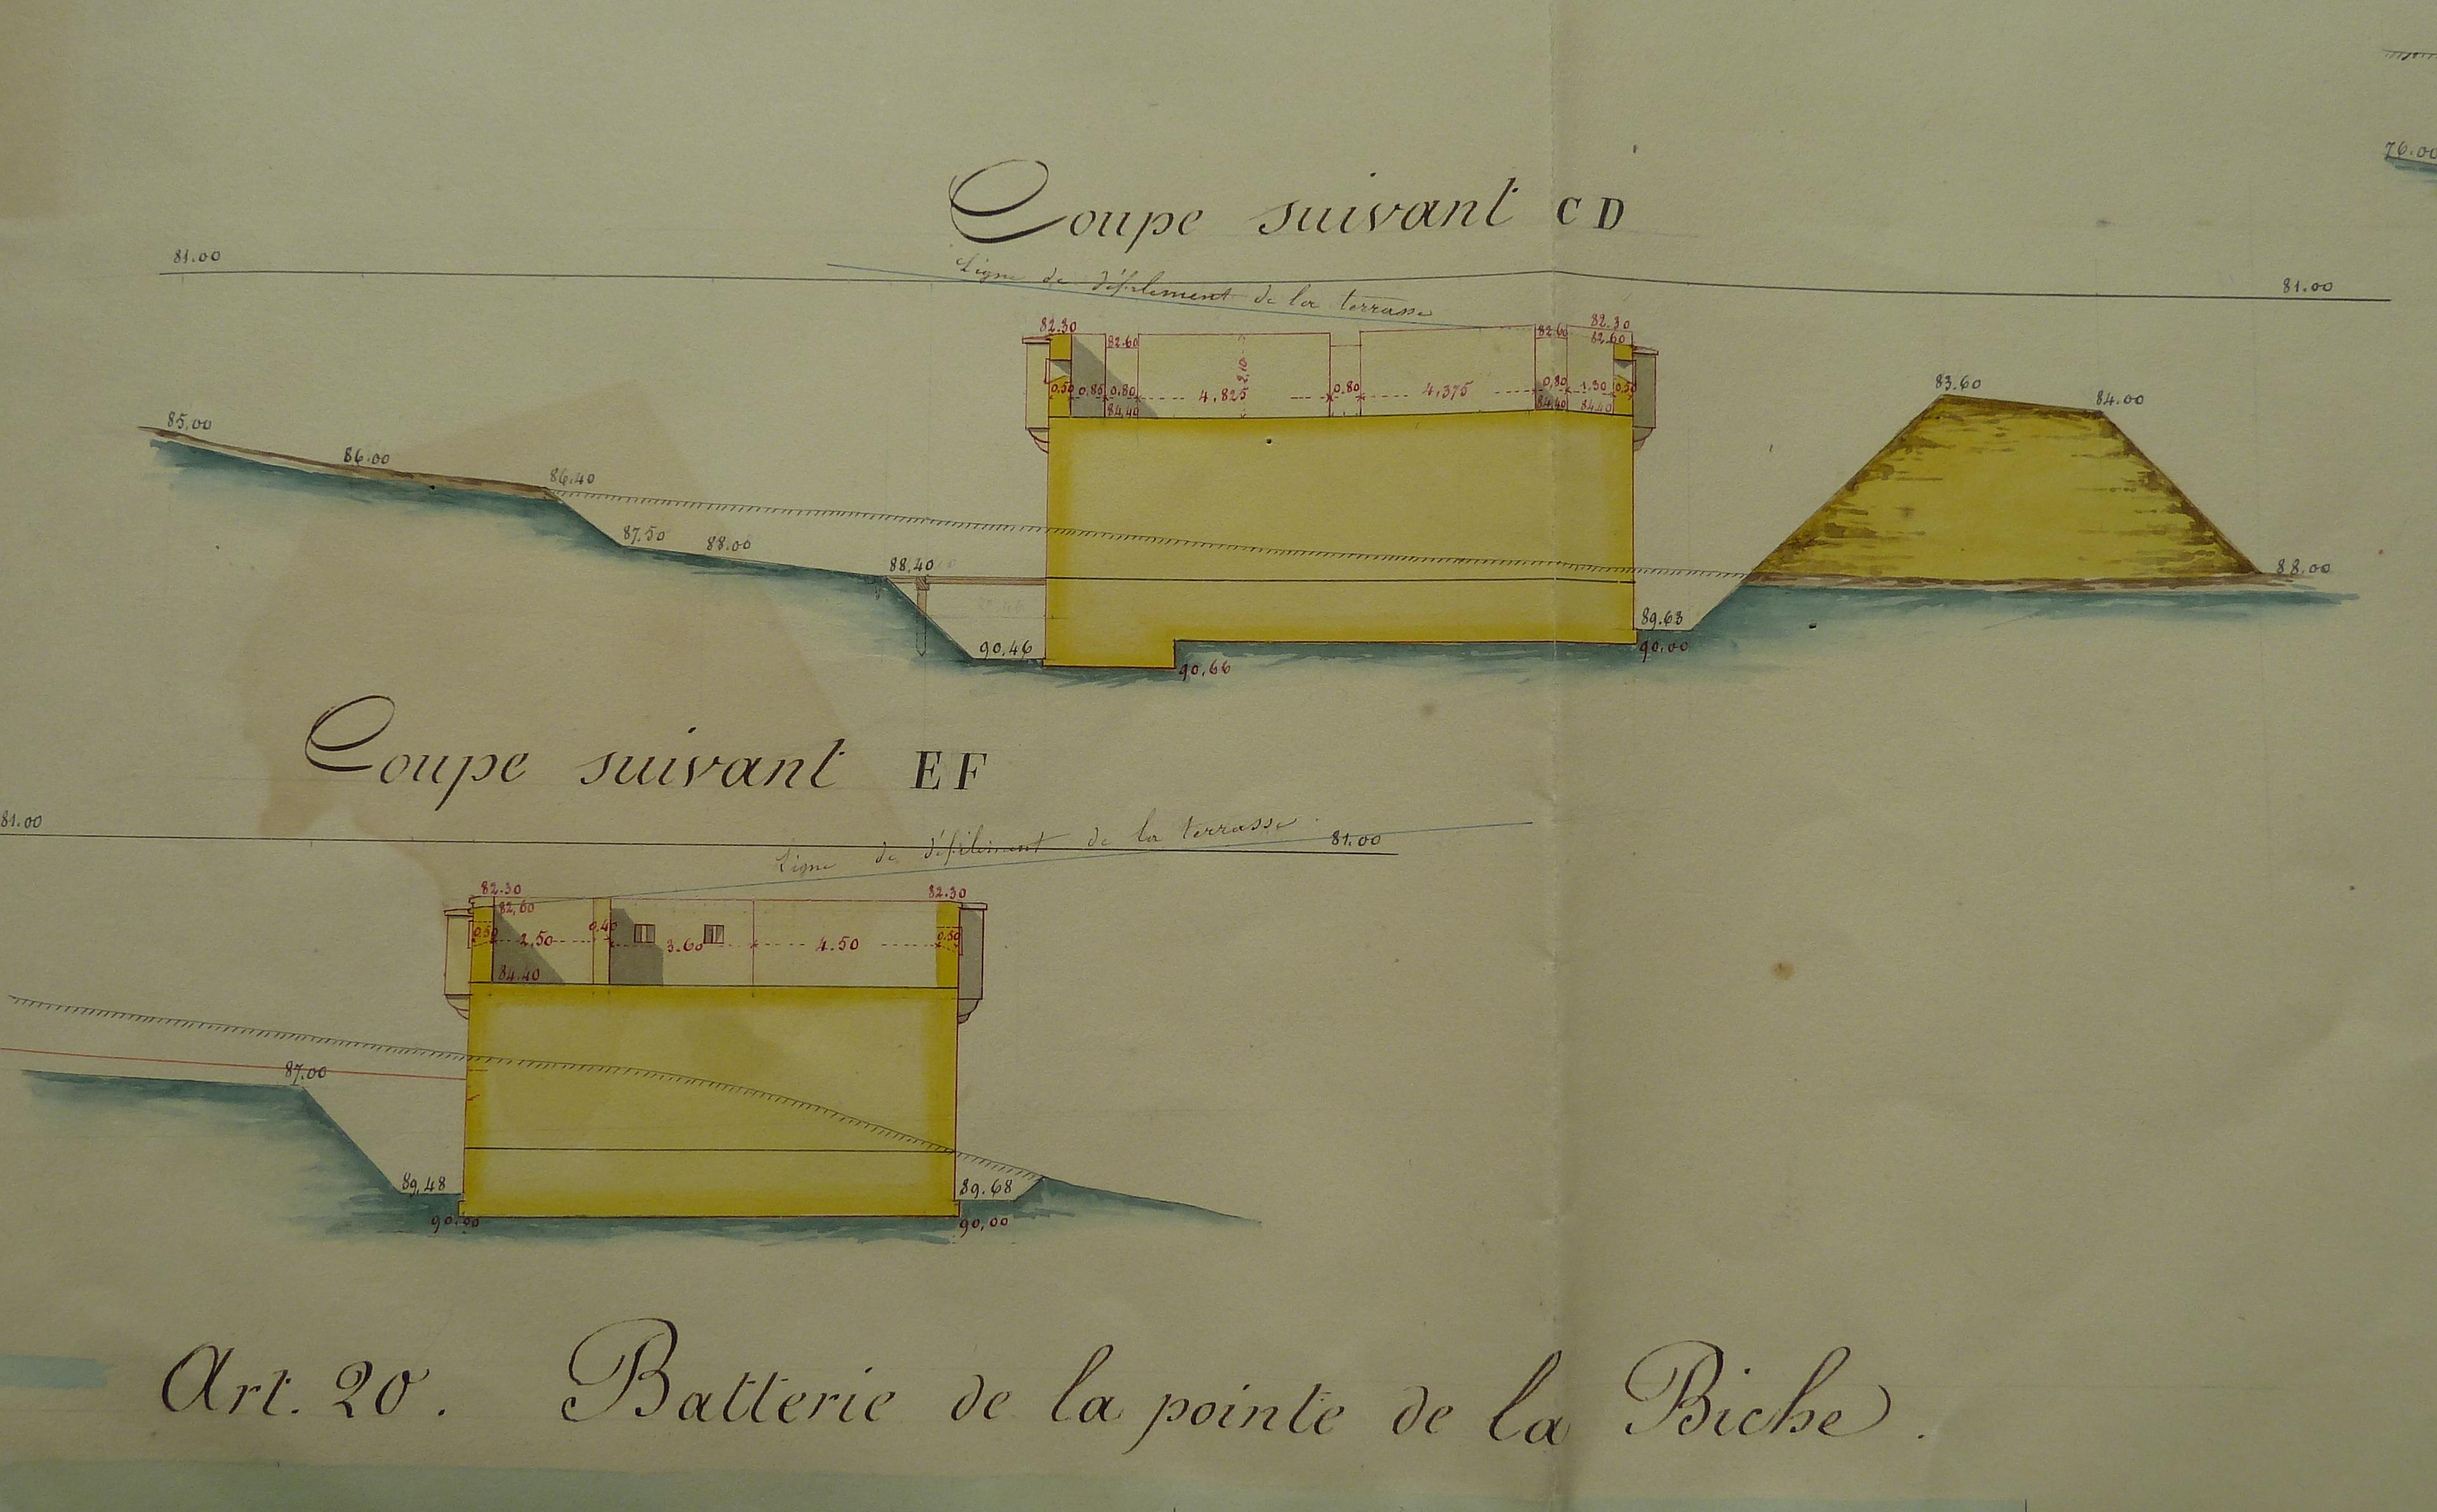 76.00
Coupe suivant C D
81.00
81.00
Ligne de défilement de la terrasse
82.30
82.60
82.60
82.30
82.60
2,10
0,50
0,85
0,80
4,825
0,80
4,375
0,80
1,30
0,50
84,40
84,40
84,40
83.60
84.00
85,00
86.00
86,40
87.50
88.00
88,40
88.00
89.63
90.00
90,46
90,66
Coupe suivant E F
81.00
Ligne de défilement de la terrasse
81.00
82.30
82.30
82,60
0,50
2,50
0,40
3.60
4.50
0,50
84.40
87.00
89,48
89.68
90.00
90,00
Art. 20. Batterie de la pointe de la Biche.